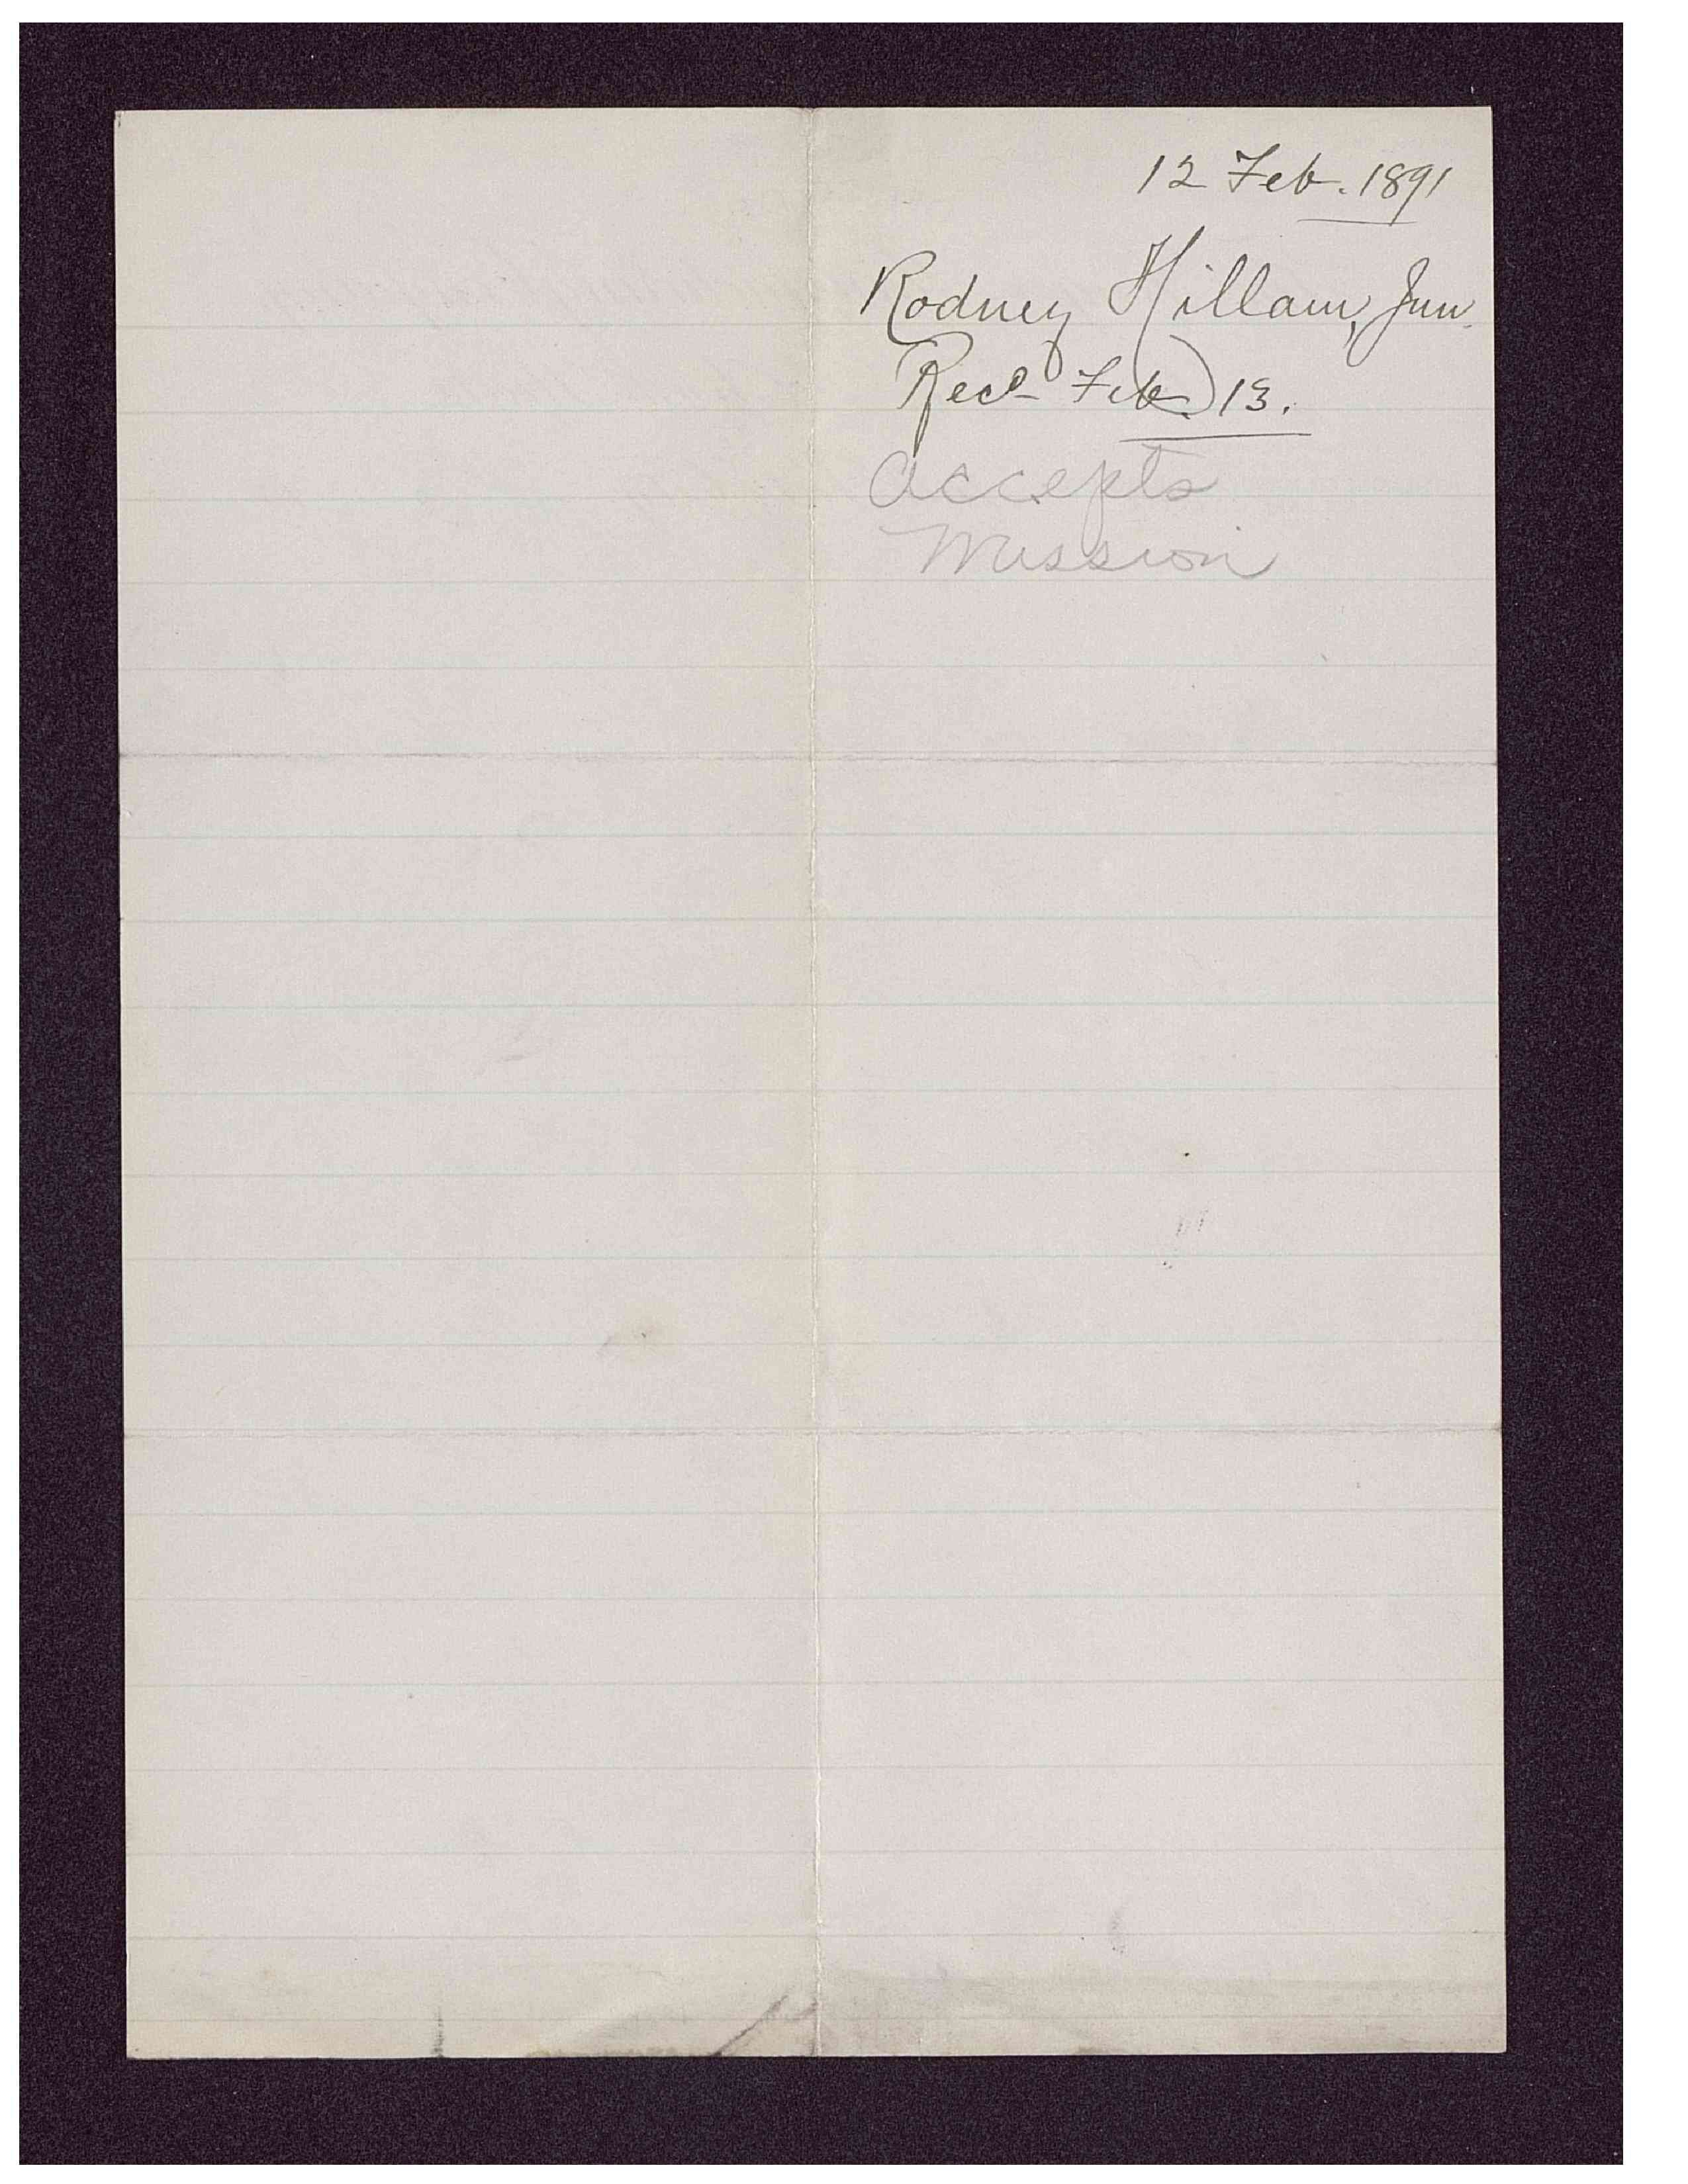 12 Feb. 1891
Rodney Hillam, Jun.
Recd Feb. 13.
Accepts
Mission